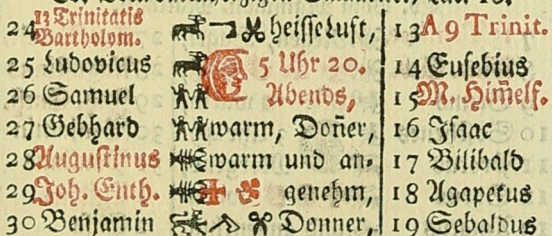 13 Trinitatis
24 Bartholom. heisse Luft, 13 A 9 Trinit.
25 Ludovicus 5 Uhr 20. 14 Eusebius
26 Samuel Abends, 15 M. Him̃elf.
27 Gebhard warm, Doñer, 16 Isaac
28 Augustinus warm und an- 17 Bilibald
29 Joh. Enth. genehm, 18 Agapetus
30 Benjamin Donner, 19 Sebaldus